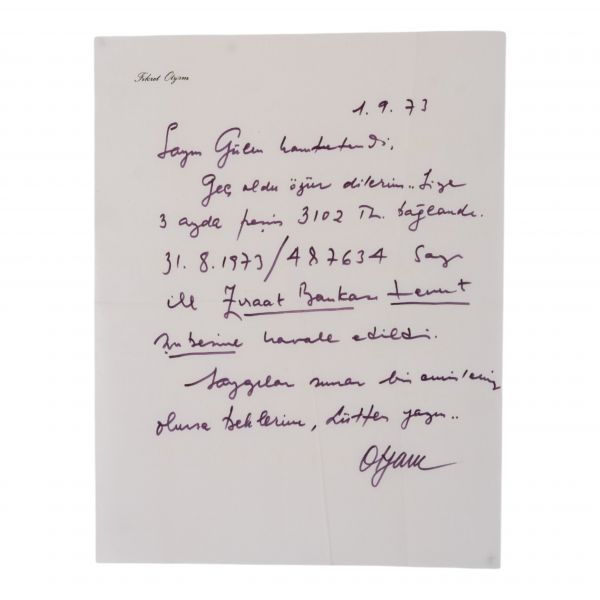 Fikret Otyam
1.9.73
Sayın Gülen
Geç oldu özür dilerim.. Size
3 ayda peşin 3102 TL. bağlandı.
31.8.1973/487634 Sayı
ile Ziraat Bankası
Şubesine havale edildi.
Saygılar sunar bir emriniz
olursa beklerim, Lütfen yazın..
Otyam